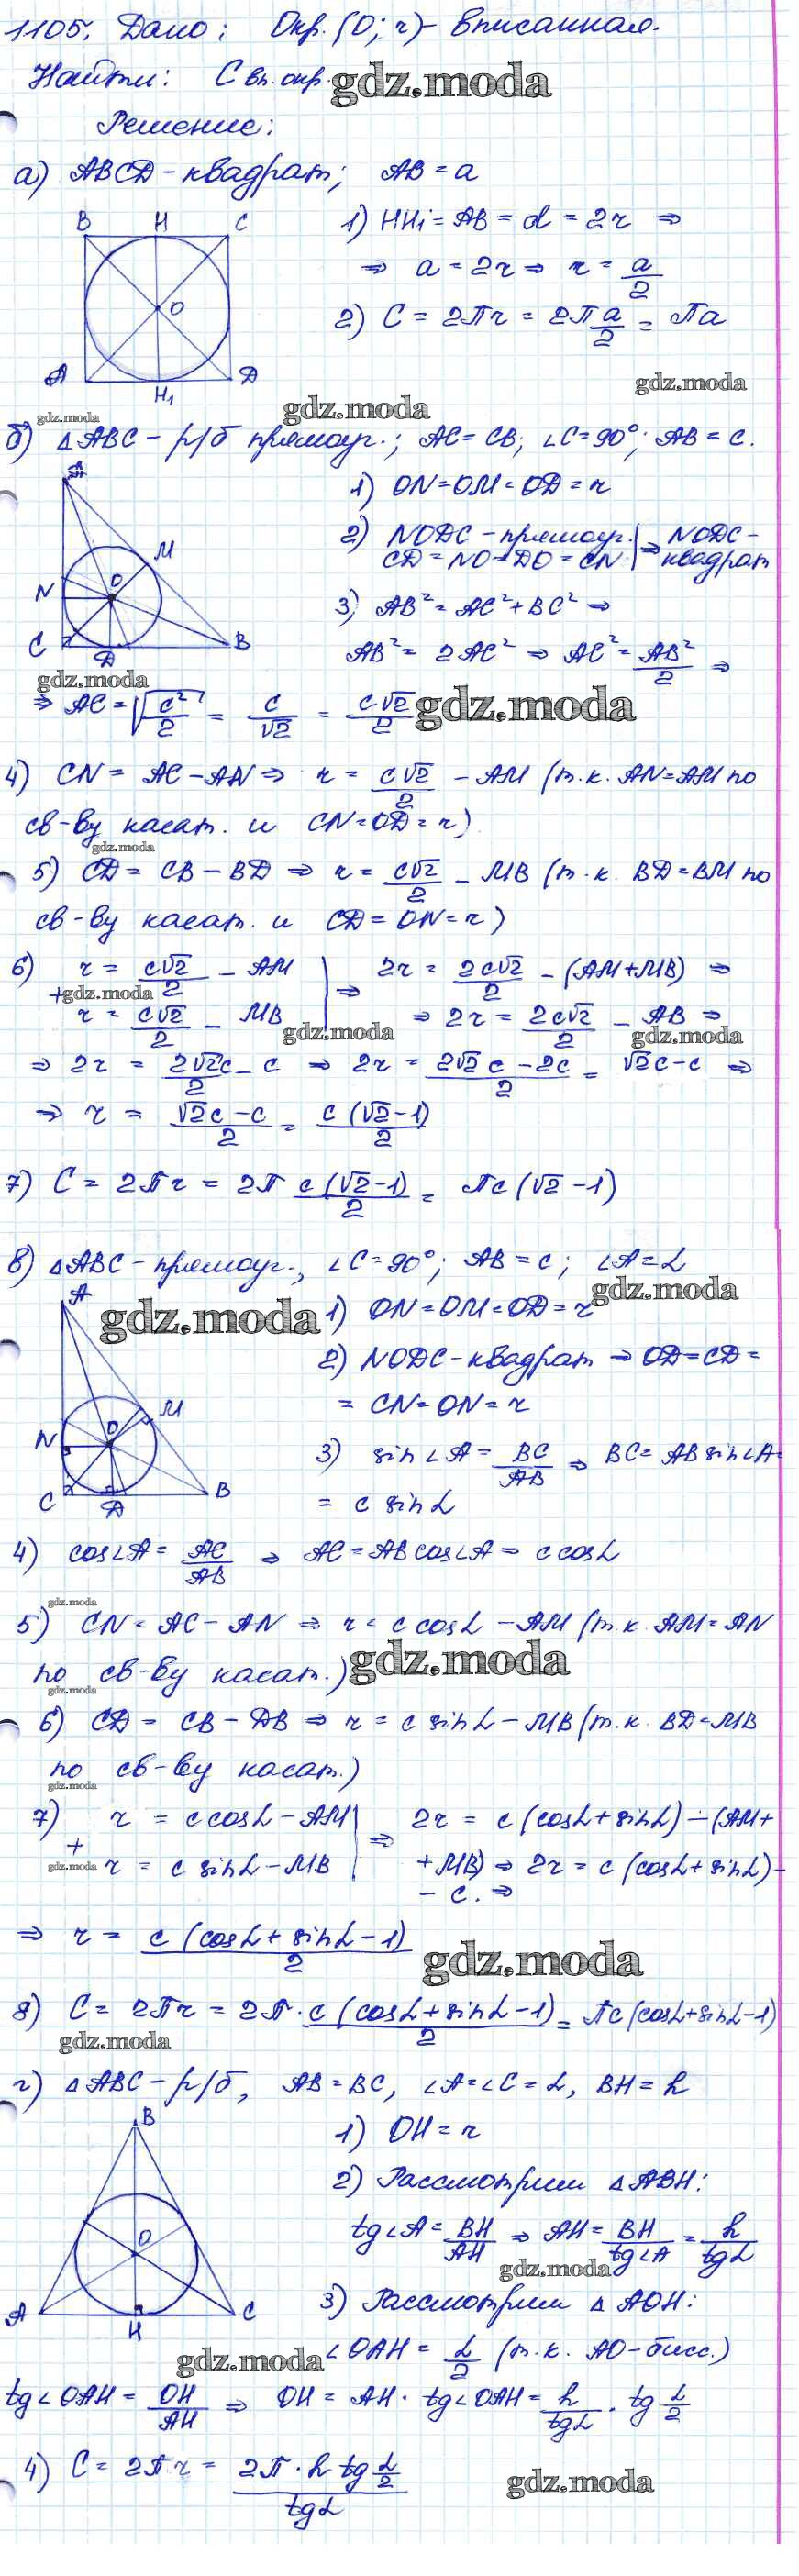 1105. Дано: Окр. (O; r) - вписанная.
Найти: C вп. окр.
gdz.moda
Решение:
а) ABCD - квадрат; AB = a
B H C
O
A H₁ D
1) HH₁ = AB = d = 2r ⇒
⇒ a = 2r ⇒ r = a/2
2) C = 2πr = 2π a/2 = πa
gdz.moda
gdz.moda
gdz.moda
б) △ABC - р/б прямоуг.; AC = CB; ∠C = 90°; AB = c.
A
M
O
N
C D B
1) ON = OM = OD = r
2) NODC - прямоуг. | ⇒ NODC -
CD = NO = DO = CN | квадрат
3) AB² = AC² + BC² ⇒
AB² = 2AC² ⇒ AC² = AB²/2 ⇒
gdz.moda
⇒ AC = √(c²/2) = c/√2 = c√2/2
gdz.moda
4) CN = AC - AN ⇒ r = c√2/2 - AM (т.к. AN = AM по
св-ву касат. и CN = OD = r)
gdz.moda
5) CD = CB - BD ⇒ r = c√2/2 - MB (т.к. BD = BM по
св-ву касат. и CD = ON = r)
6) r = c√2/2 - AM | ⇒ 2r = 2c√2/2 - (AM + MB) ⇒
+ gdz.moda
r = c√2/2 - MB | ⇒ 2r = 2c√2/2 - AB ⇒
gdz.moda
gdz.moda
⇒ 2r = 2√2c/2 - c ⇒ 2r = (2√2c - 2c)/2 = √2c - c ⇒
⇒ r = (√2c - c)/2 = c(√2 - 1)/2
7) C = 2πr = 2π c(√2 - 1)/2 = πc(√2 - 1)
в) △ABC - прямоуг., ∠C = 90°; AB = c; ∠A = α
gdz.moda
A
gdz.moda
M
O
N
C D B
1) ON = OM = OD = r
2) NODC - квадрат ⇒ OD = CD =
= CN = ON = r
3) sin∠A = BC/AB ⇒ BC = AB sin∠A =
= c sinα
4) cos∠A = AC/AB ⇒ AC = AB cos∠A = c cosα
gdz.moda
5) CN = AC - AN ⇒ r = c cosα - AM (т.к. AM = AN
по св-ву касат.)
gdz.moda
gdz.moda
6) CD = CB - DB ⇒ r = c sinα - MB (т.к. BD = MB
по св-ву касат.)
gdz.moda
7) r = c cosα - AM | ⇒ 2r = c(cosα + sinα) - (AM +
+
gdz.moda
r = c sinα - MB | + MB) ⇒ 2r = c(cosα + sinα) -
- c. ⇒
⇒ r = c(cosα + sinα - 1)/2
gdz.moda
8) C = 2πr = 2π · c(cosα + sinα - 1)/2 = πc(cosα + sinα - 1)
gdz.moda
г) △ABC - р/б, AB = BC, ∠A = ∠C = α, BH = h
B
O
A H C
1) OH = r
2) Рассмотрим △ABH:
tg∠A = BH/AH ⇒ AH = BH/tg∠A = h/tgα
gdz.moda
3) Рассмотрим △AOH:
∠OAH = α/2 (т.к. AO - бисс.)
gdz.moda
tg∠OAH = OH/AH ⇒ OH = AH · tg∠OAH = h/tgα · tg α/2
4) C = 2πr = 2π · h tg α/2 / tgα
gdz.moda